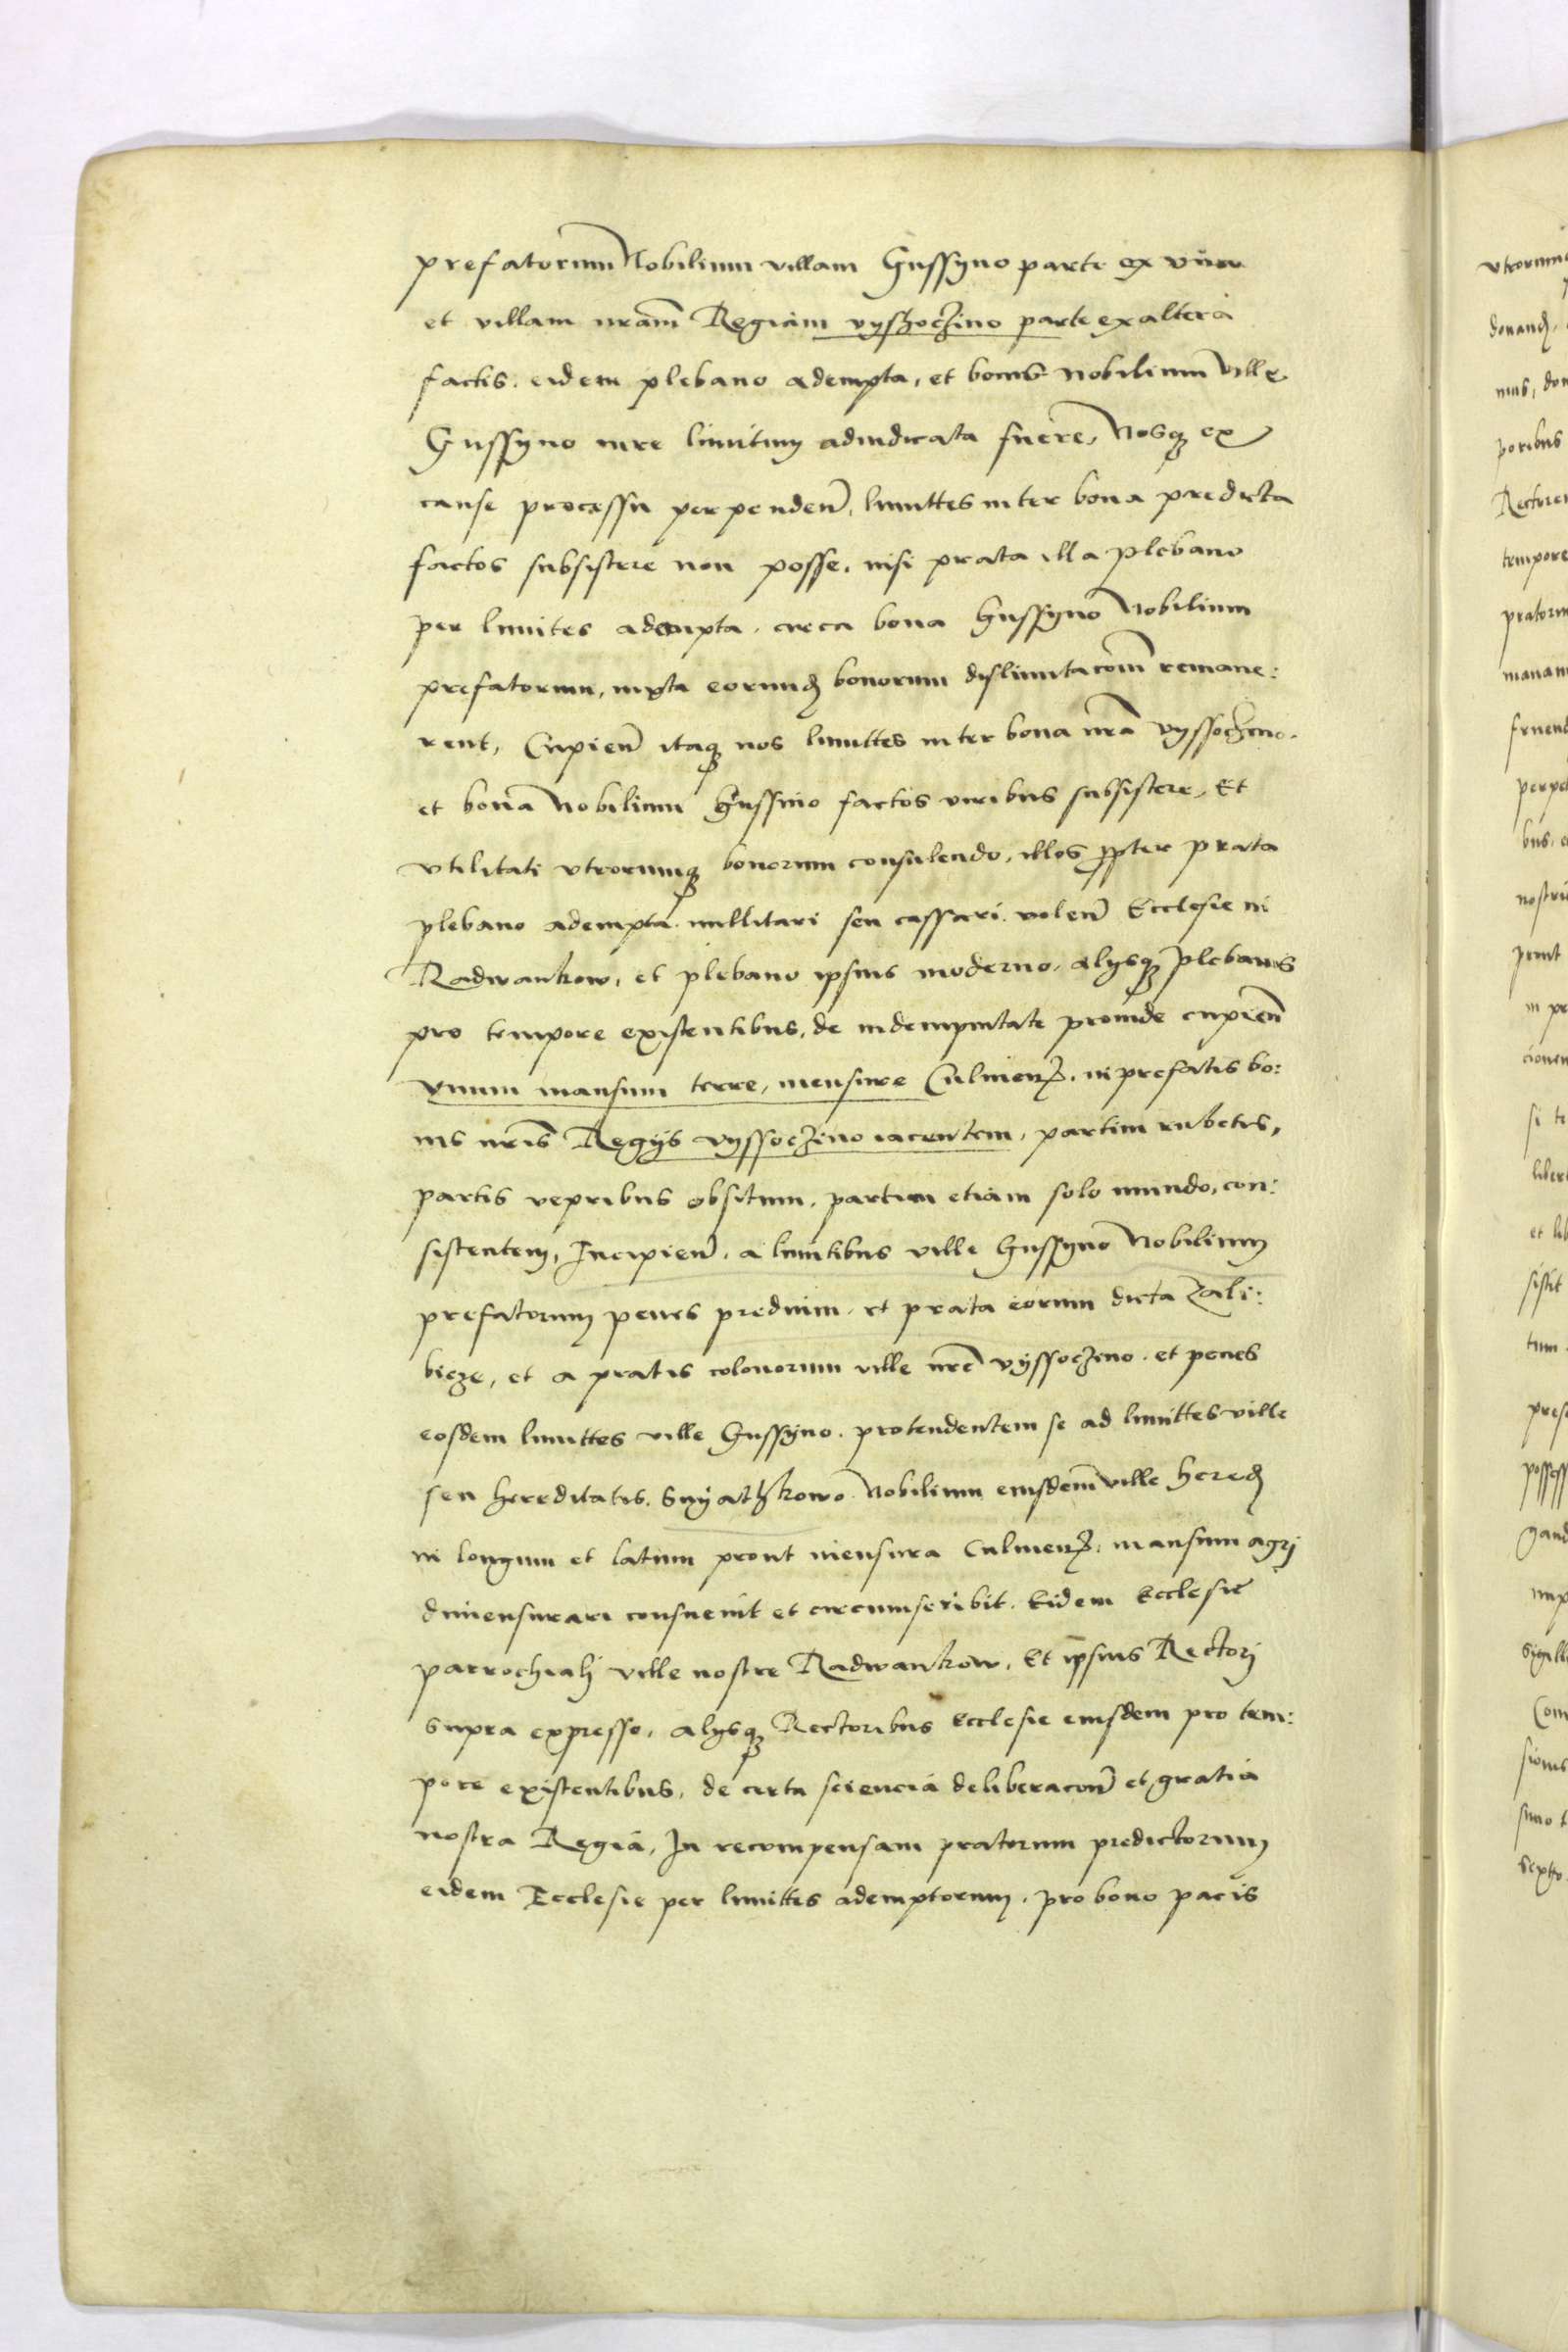 prefatorum Nobilium villam Gussyno parte ex vna
et villam nram̃ Regiam vyszoczino parte ex altera
factis. eidem plebano adempta, et bonis Nobilium ville
Gussyno iure limitum adiudicata fuere, Nosq̃ ex
cause processu perpendeñ, limittes inter bona predicta
factos subsistere non posse, nisi prata illa plebano
per limites adempta, circa bona Gussyno Nobilium
prefatorum, iuxta eorund̃ bonorum dislimitacom̃ remane:
rent, Cupieñ itaq̃ nos limittes inter bona nrã vyssoczino.
et bona Nobilium Gussino factos viribus subsistere, Et
vtilitati vtrorumq̃ bonorum consulendo, illos ꝓpter prata
plebano adempta nullitari seu cassari. voleñ Ecclesie in
Radwankow, et plebano ipsius moderno, alysq̃ plebanis
pro tempore existentibus, de indempnitate proinde cupieñ
vnum mansum terre, mensure Culmeñ. in prefatis bo:
nis nrĩs Regys vyssoczino iacentem, partim rubetis,
partis vepribus obsitum, partim etiam solo mundo, con:
sistentem, Incipieñ. a limitibus ville Gussyno Nobilium
prefatorum penes predium. et prata eorum dicta Zali:
bieze, et a pratis colonorum ville nrẽ vyssoczino. et penes
eosdem limittes ville Gussyno. protendentem se ad limittes ville
seu hereditatis. Snyathkowo Nobilium eiusdem ville hered̃
in longum et latum prout mensura Culmeñ. mansum agri
dimensurari consuevit et circumscribit. Eidem Ecclesie
parrochiali ville nostre Radwankow, Et ipsius Rectori
supra expresso, alysq̃ Rectoribus Ecclesie eiusdem pro tem:
pore existentibus, de certa sciencia deliberacoñ et gratia
nostra Regia, In recompensam pratorum predictorum
eidem Ecclesie per limittes ademptorum. pro bono pacis